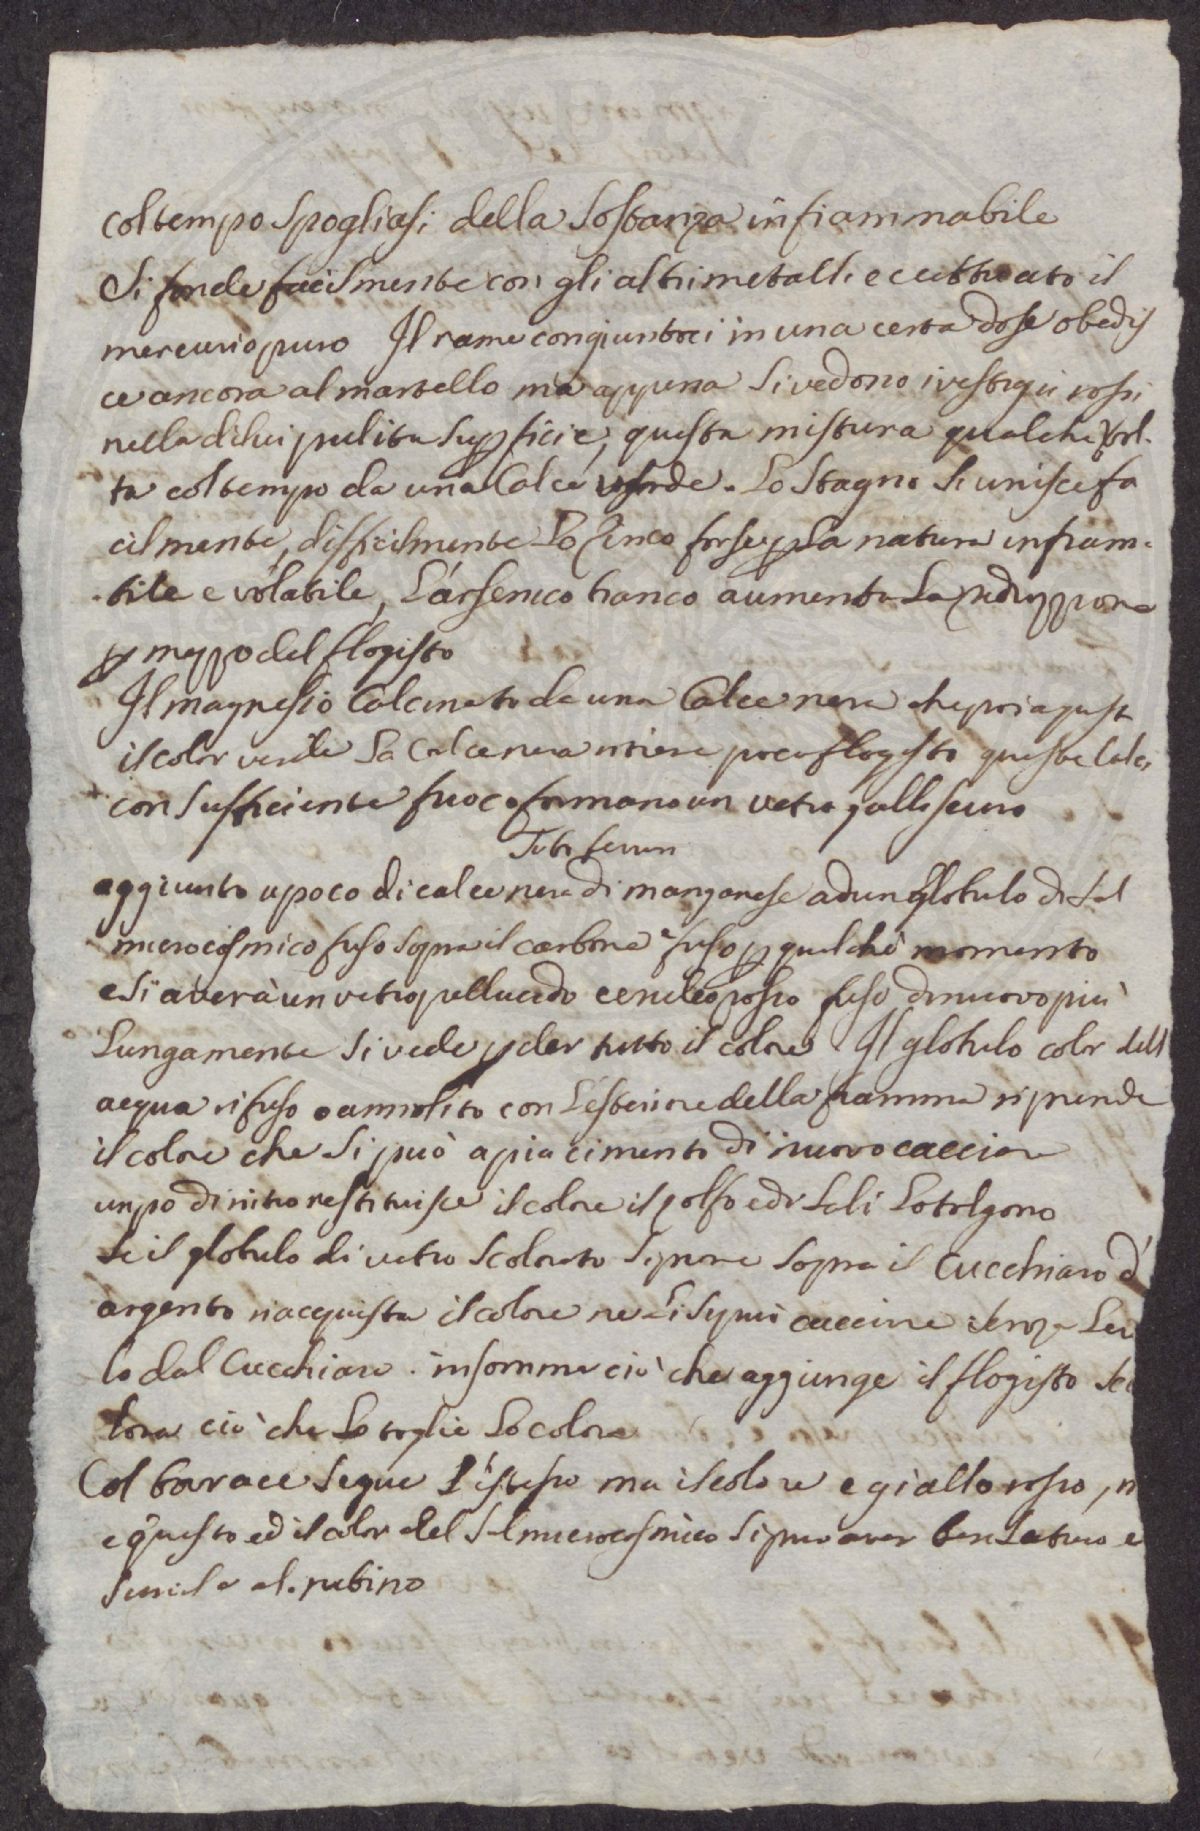 col tempo spogliasi della sostanza infiammabile
si fonde facilmente con gli altri metalli eccettuato il
mercurio puro Il rame congiuntoci in una certa dose obedis
ce ancora al martello ma appena si vedono i vestigii rossi
nella di lui pulita suꝑficie, questa mistura qualche vol-
ta col tempo da una Calce verde. Lo Stagno si unisce fa
cilmente, difficilmente Lo Zinco forse ꝑ La natura infiam-
bile e volatile, L'arsenico bianco aumenta La riduzzione
ꝑ mezzo del flogisto
Il magnesio Calcinato da una Calce nera che poi aquista
il color verde La Calce nera ritiene poco flogisto queste Calci
con sufficiente fuoco formano un vetro giallo scuro
aggiunto un poco di calce nera di manganese ad un globulo di Sal
microcosmico fuso sopra il carbone e fuso ꝑ qualche momento
e si averà un vetro pellucido ceruleo rosso fuso di nuovo più
Lungamente si vede ꝑder tutto il colore. Il globulo color dell
acqua rifuso o ammolito con L'esteriore della fiamma riprende
il colore che si può a piacimento di nuovo cacciare
un po di nitro restituisce il colore il solfo ed i Sali Lo tolgono
Se il globulo di vetro scolorato si pone sopra il Cucchiaro d'
argento riacquista il colore ne si può cacciare senza Lev
lo dal Cucchiaro. insomma ciò che aggiunge il flogisto sco
lora ciò che Lo toglie Lo colora
Col borace segue L'istesso ma il colore e giallo rosso,
e questo ed il color del Sal microcosmico si può aver ben saturo e
simile al rubino